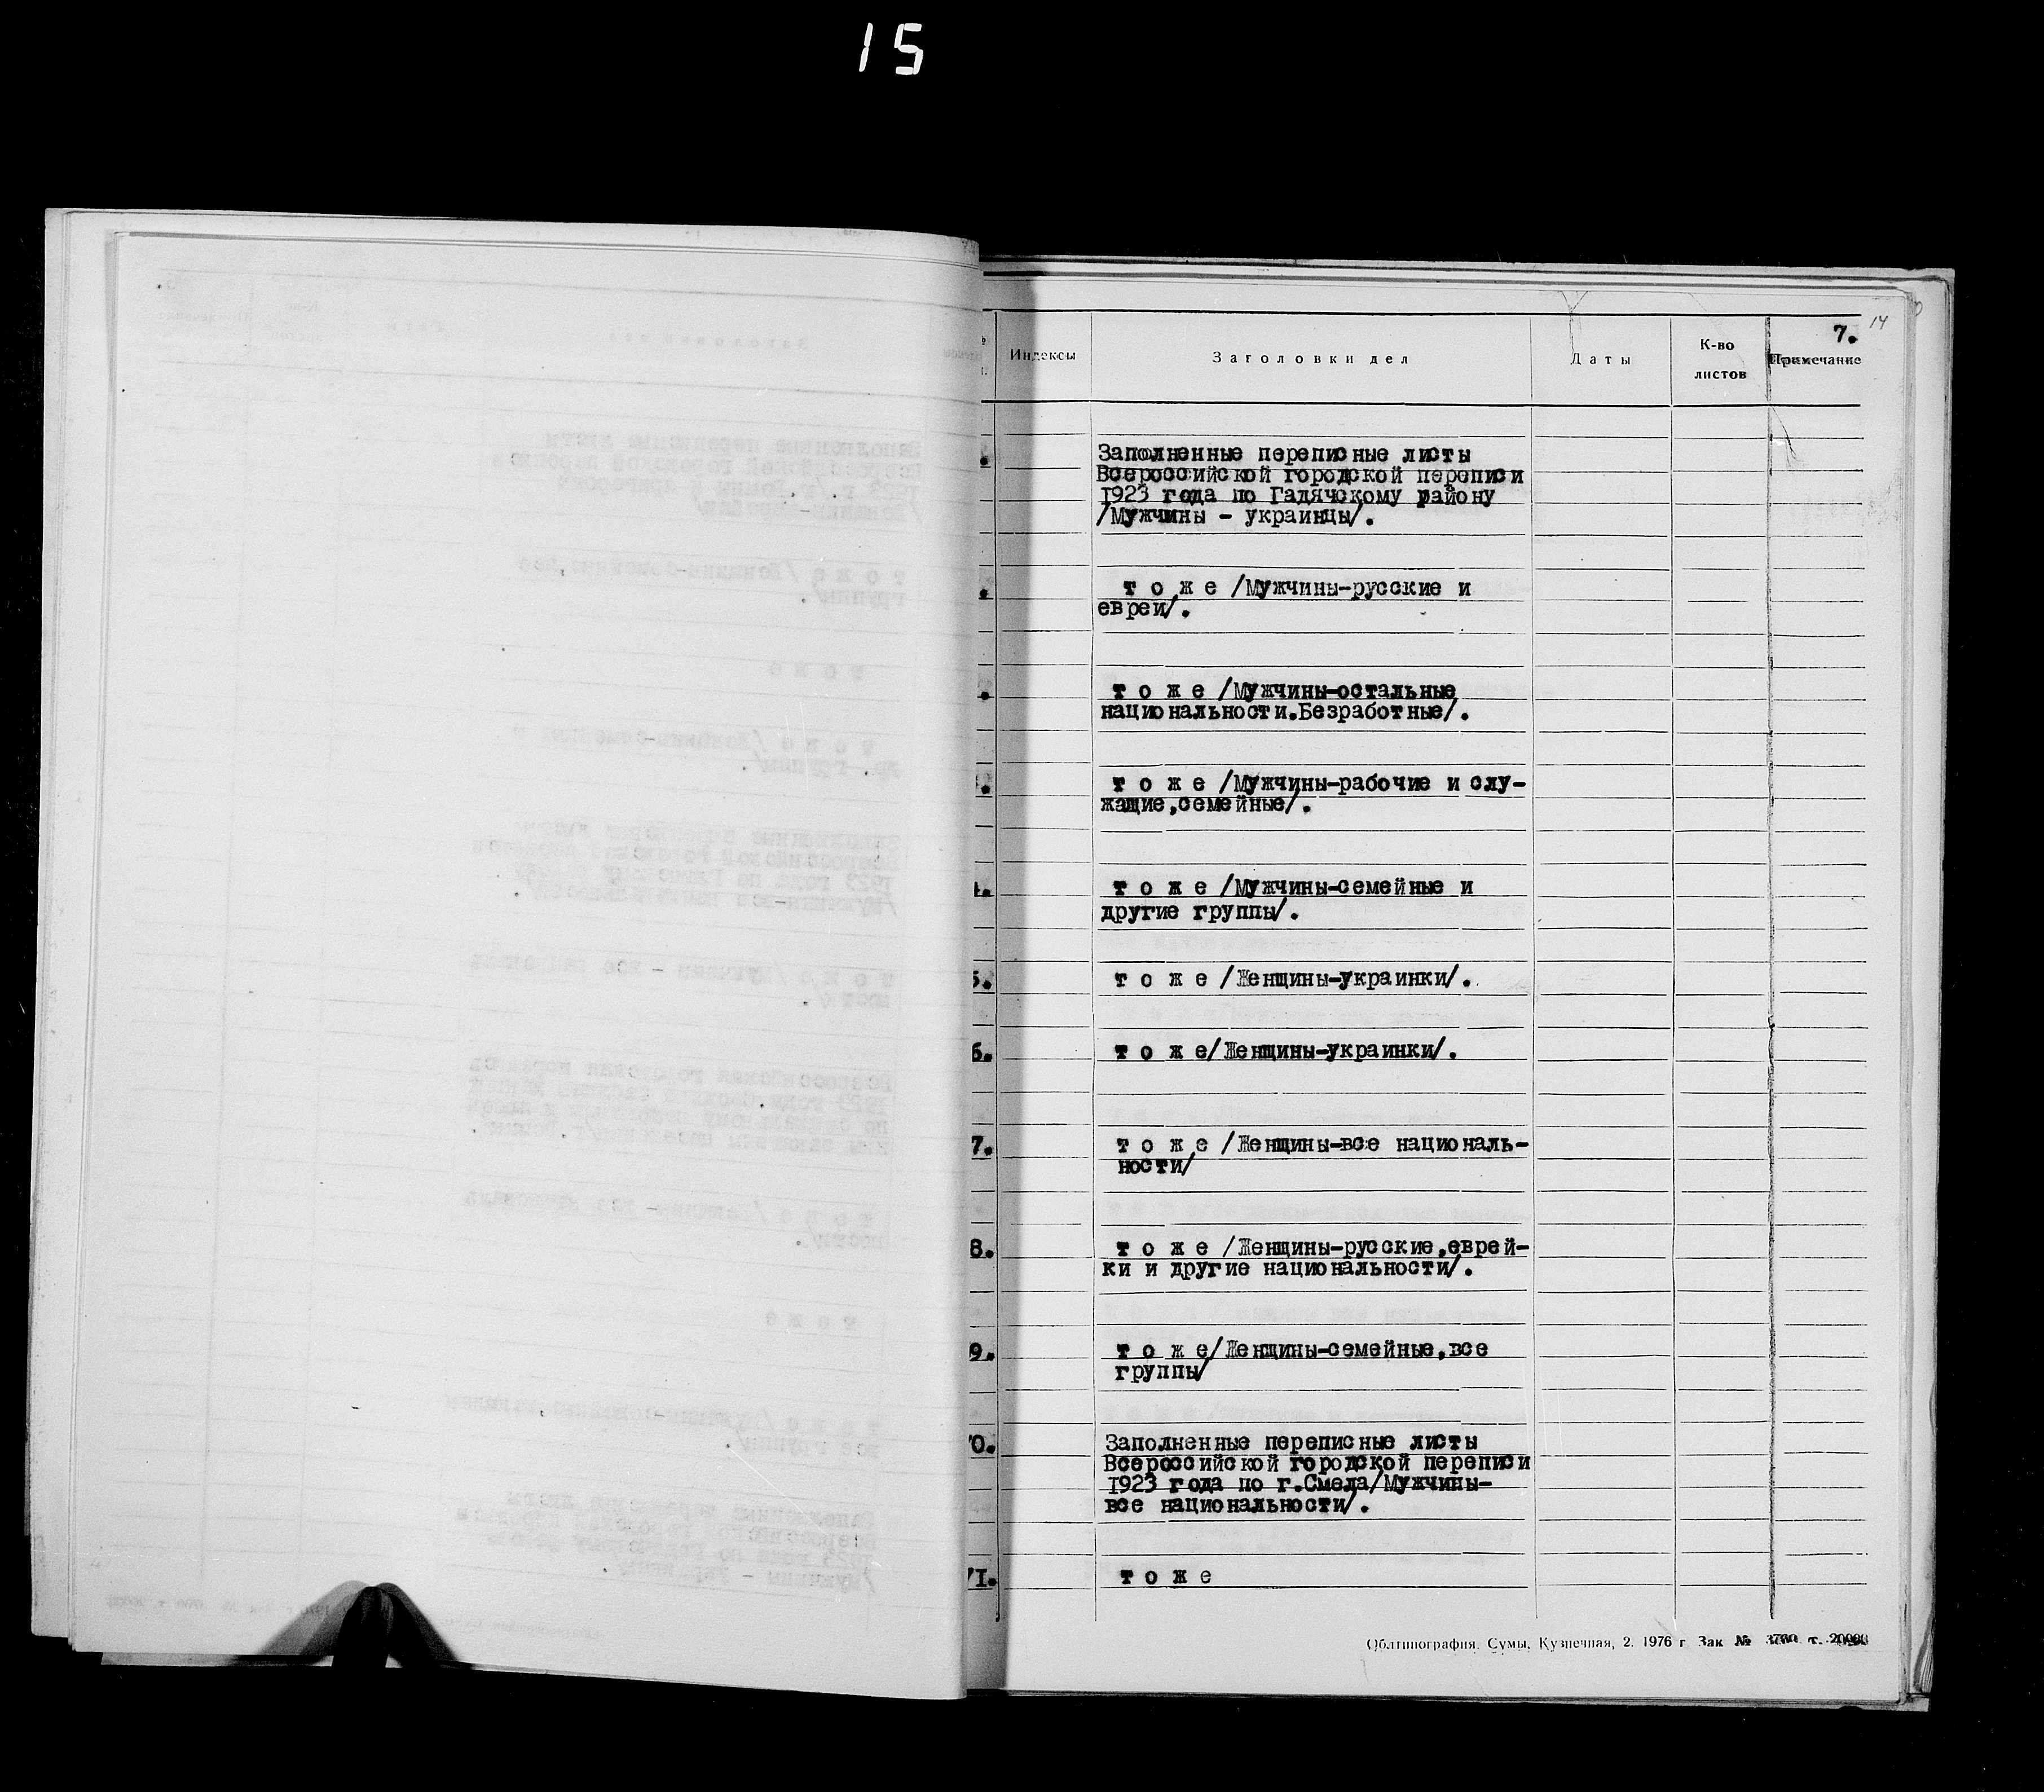 15
14
7.
Индексы
Заголовки дел
Даты
К-во
листов
Примечание
Заполненные переписные листы
Всероссийской городской переписи
1923 года по Гадячскому району
/Мужчины - украинцы/.
т о ж е /Мужчины-русские и
евреи/.
т о ж е /Мужчины-остальные
национальности.Безработные/.
т о ж е /Мужчины-рабочие и слу-
жащие,семейные/.
4. т о ж е /Мужчины-семейные и
другие группы/.
5. т о ж е /Женщины-украинки/.
6. т о ж е/Женщины-украинки/.
7. т о ж е /Женщины-все националь-
ности/
8. т о ж е /Женщины-русские,еврей-
ки и другие национальности/.
9. т о ж е/Женщины-семейные,все
группы/
70. Заполненные переписные листы
Всероссийской городской переписи
1923 года по г.Смела/Мужчины-
все национальности/.
71. т о ж е
Облтипография. Сумы, Кузнечная, 2. 1976 г Зак № 3760 т. 20000